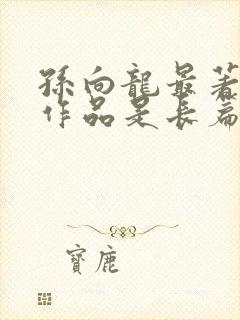 孫向龍最著
作品是長篇
寶鹿